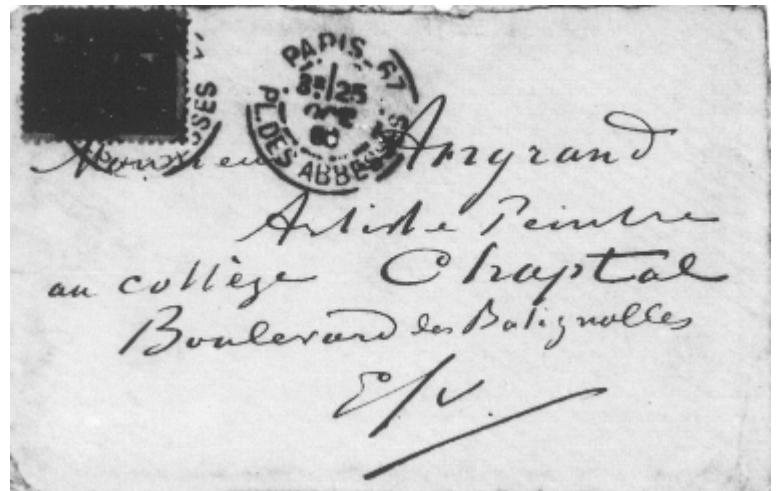 PARIS-67
8E/25
OCT
86
PL. DES ABBESSES
SSES
Monsieur Angrand
Artiste Peintre
au collège Chaptal
Boulevard des Batignolles
E/V.